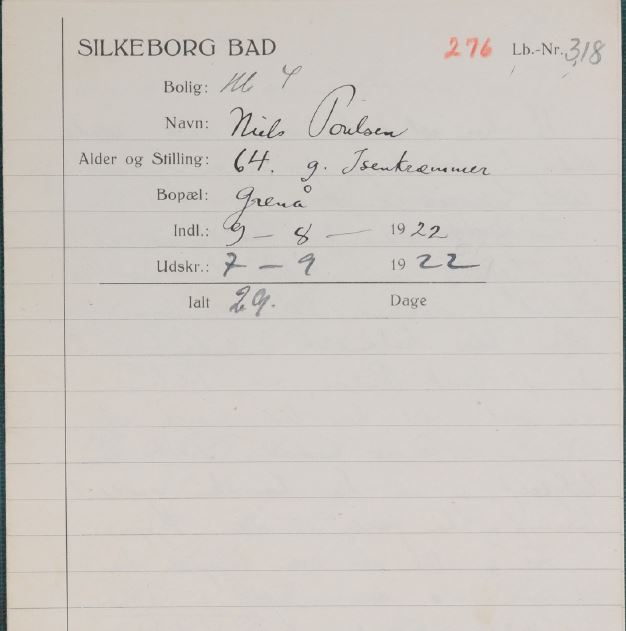 SILKEBORG BAD 276 Lb.-Nr. 318
Bolig: 4
Navn: Niels Poulsen
Alder og Stilling: 64. g. Isenkræmmer
Bopæl: Grenå
Indl.: 9 – 8 – 1922
Udskr.: 7 – 9 1922
Ialt 29. Dage